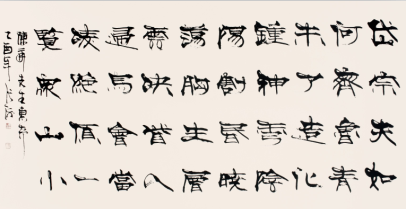 岱宗夫如
何齊魯青
未了造化
鍾神秀陰
陽割昏曉
蕩胸生層
雲決眥入
歸鳥會當
凌絕頂一
覽眾山小
先生
乙酉年